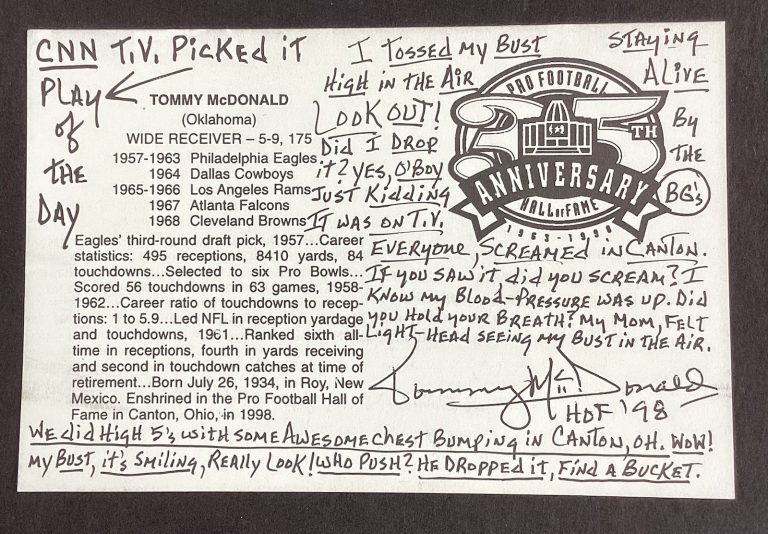 CNN T.V. PICKED IT
PLAY
of
THE
DAY
TOMMY McDONALD
(Oklahoma)
WIDE RECEIVER – 5-9, 175
1957-1963 Philadelphia Eagles
1964 Dallas Cowboys
1965-1966 Los Angeles Rams
1967 Atlanta Falcons
1968 Cleveland Browns
Eagles' third-round draft pick, 1957...Career
statistics: 495 receptions, 8410 yards, 84
touchdowns...Selected to six Pro Bowls...
Scored 56 touchdowns in 63 games, 1958-
1962...Career ratio of touchdowns to recep-
tions: 1 to 5.9...Led NFL in reception yardage
and touchdowns, 1961...Ranked sixth all-
time in receptions, fourth in yards receiving
and second in touchdown catches at time of
retirement...Born July 26, 1934, in Roy, New
Mexico. Enshrined in the Pro Football Hall of
Fame in Canton, Ohio, in 1998.
I TOSSED MY BUST
HIGH IN THE AIR
LOOK OUT!
DID I DROP
IT? YES, O'BOY
JUST KIDDING
IT WAS ON T.V,
EVERYONE, SCREAMED IN CANTON.
IF YOU SAW IT DID YOU SCREAM? I
KNOW MY BLOOD-PRESSURE WAS UP. DID
YOU HOLD YOUR BREATH? MY MOM, FELT
LIGHT-HEAD SEEING MY BUST IN THE AIR.
STAYING
ALIVE
By
THE
BG's
PRO FOOTBALL
35TH
ANNIVERSARY
HALL OF FAME
1963-1998
Tommy McDonald
HOF '98
WE DID HIGH 5'S WITH SOME AWESOME CHEST BUMPING IN CANTON, OH. WOW!
MY BUST, IT'S SMILING, REALLY LOOK! WHO PUSH? HE DROPPED IT, FIND A BUCKET.